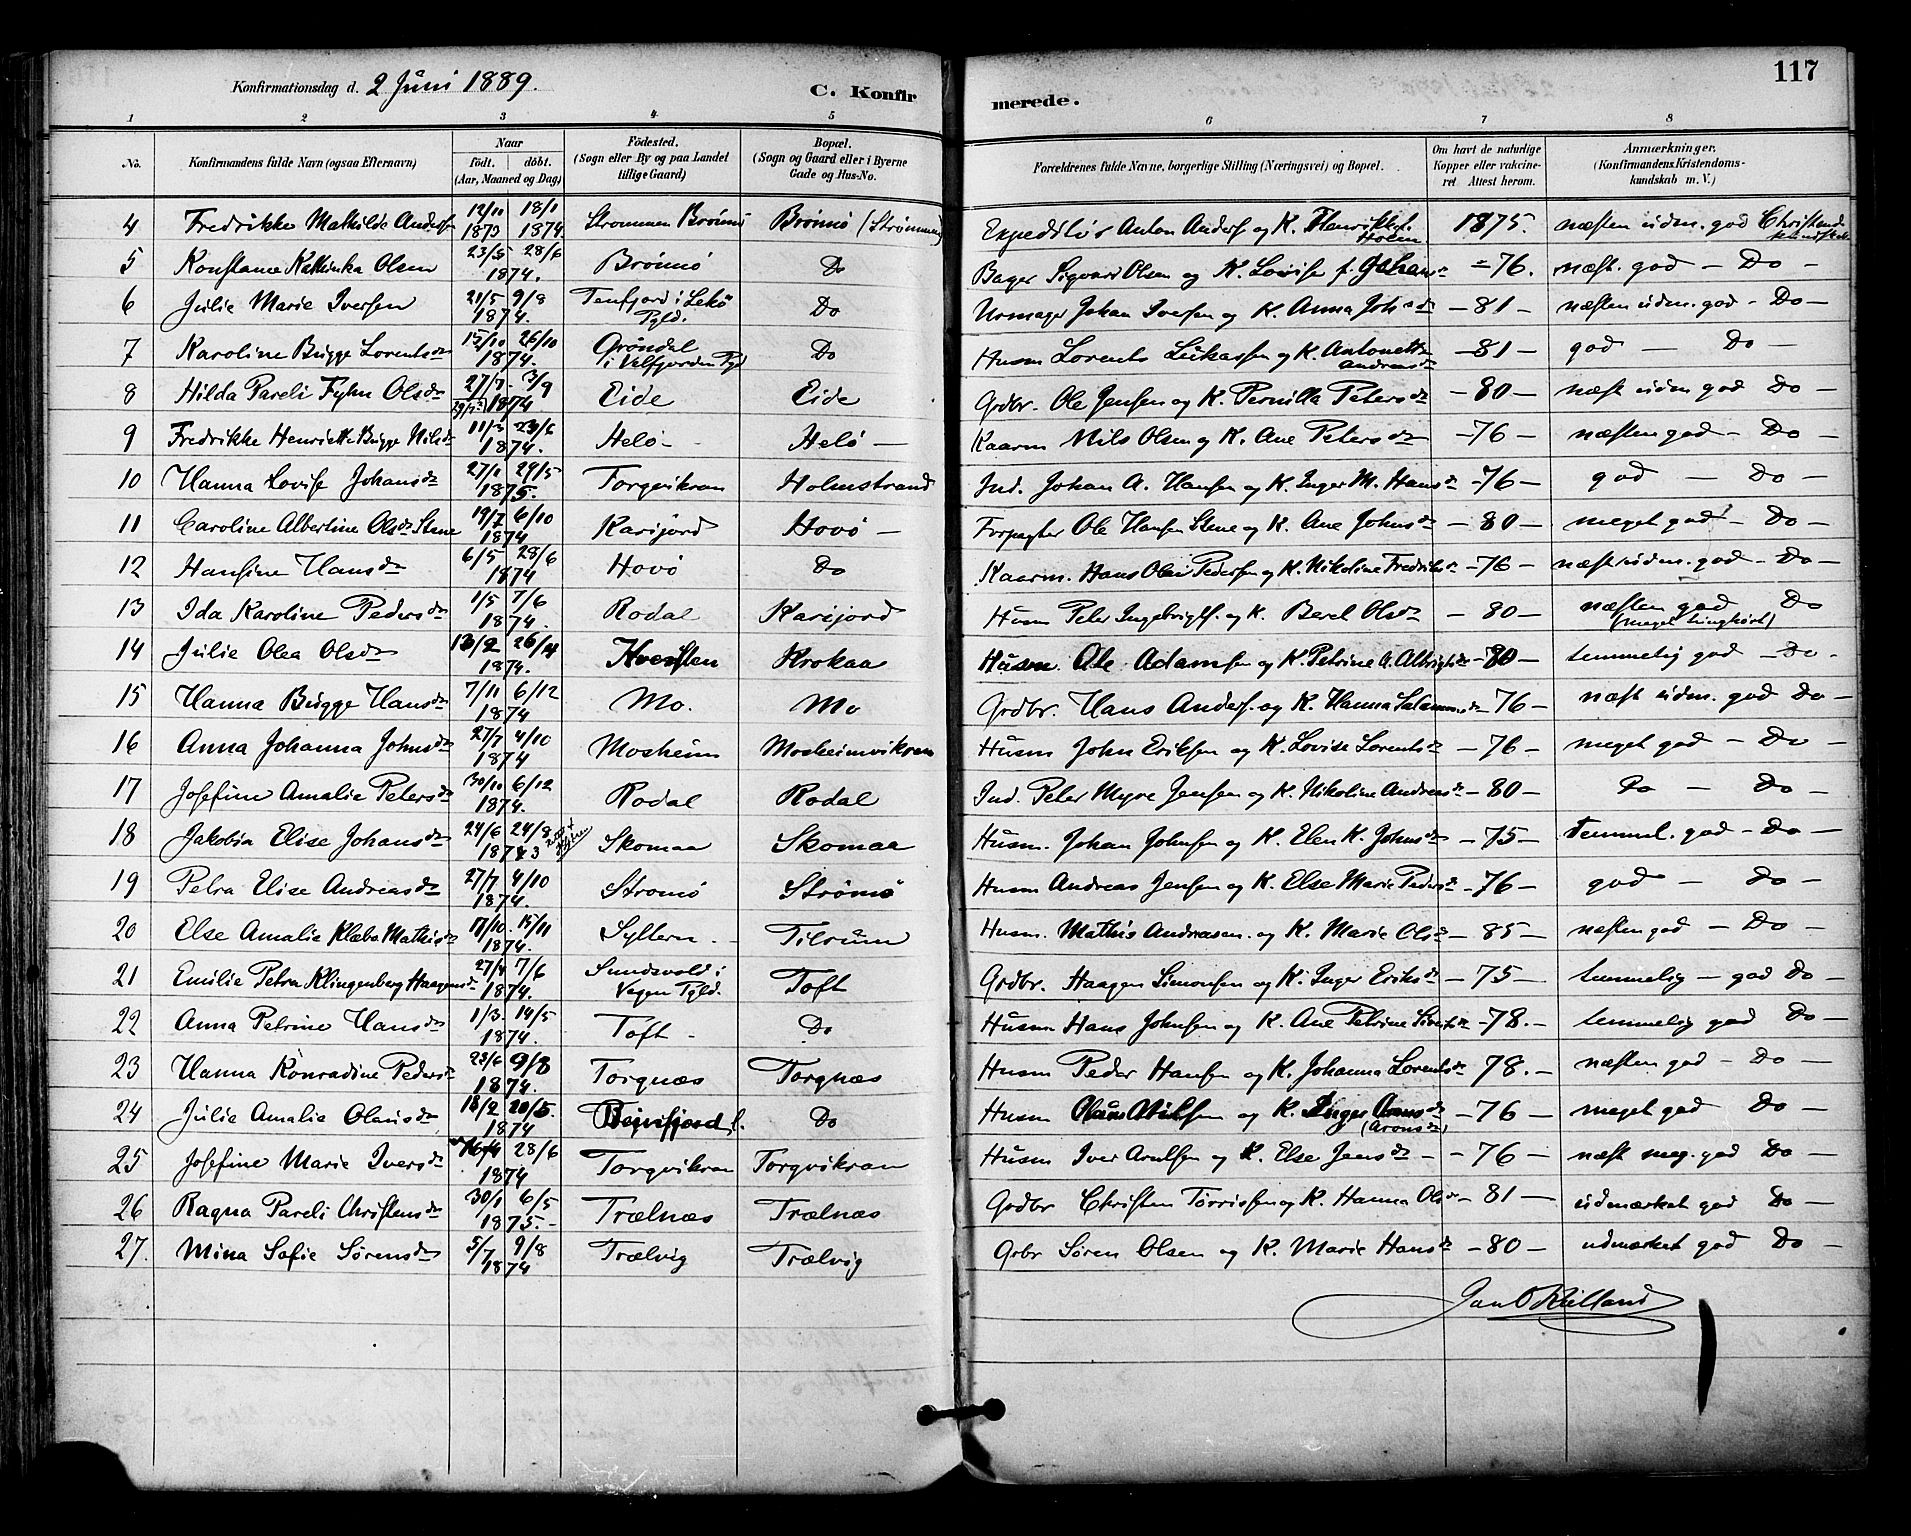 117
Konfirmationsdag d. 2 Juni 1889.
C. Konfirmerede.
1 2 3 4 5 6 7 8
No. Konfirmandens fulde Navn (ogsaa Efternavn) Naar födt. döbt. (Aar, Maaned og Dag) Födested. (Sogn eller By og paa Landet tillige Gaard) Bopæl. (Sogn og Gaard eller i Byerne Gade og Hus-No. Forældrenes fulde Navne, borgerlige Stilling (Næringsvei) og Bopæl. Om havt de naturlige Kopper eller vakcineret Attest herom. Anmærkninger. (Konfirmandens Kristendomskundskab m. V.)
4 Fredrikke Mathilde Andersen 12/11 1873 18/1 1874 Strømmen Brönnö Brönnö (Strømmen) Expeditör Anton Anders. og K. Henrikke f. Holm 1875. næsten udm. god Christend. kundskab
5 Konstance Kathinka Olsen 23/5 28/6 1874. Brönnö Do Bager Sigvard Olsen og K. Lovise f. - 76. næst. god - Do -
6 Julie Marie Iversen 21/5 9/8 1874. Tenfjord i Lekö Pgld. Do Urmager Johan Iversen og K. Anna Johsdr - 81 - næsten udm. god - Do -
7 Karoline Brygge Lorentsdr 15/10 26/10 1874. Gröndal i Velfjorden Pgd Do Husm Lorents Lukassen og K. Antonette Andreasdr - 81 - god - Do -
8 Hilda Pareli Fyhn Olsdr 27/7 3/9 1874 Eide Eide Grdbr. Ole Jensen og K. Pernilla Petersdr - 80 - næst udm god Do -
9 Fredrikke Henriette Brygge Nilsdr 11/3 23/6 1874. Helö - Helö - Kaarm Nils Olsen og K. Ane Petersdr - 76 - næsten god - Do -
10 Hanna Lovise Johansdr 27/1 29/5 1875. Torgvikran Holmstrand Ind. Johan A. Hansen og K. Inger M. Hansdr - 76 - god - Do -
11 Caroline Albertine Olsdr Stene 19/7 6/10 1874 Karijord Hovö - Forpagter Ole Hansen Stene og K. Ane Johnsdr - 80 - meget god - Do -
12 Hansine Hansdr 6/5 28/6 1874 Hovö Do Kaarm. Hans Olai Pedersen og K. Nikoline Fredriksdr - 76 - næst udm. god - Do -
13 Ida Karoline Pedersdr 1/5 7/6 1874. Rodal Karijord Husm Peter Ingebrigts. og K. Beret Olsdr - 80 - næsten god Do (meget tunghört)
14 Julie Olea Olsdr 13/2 26/4 1874. Krokaa Husm Ole Adamsen og K. Petrine A. Albrigtsdr - 80 - temmelig god - Do -
15 Hanna Brygge Hansdr 7/11 6/12 1874 Mo. Mo Grdbr. Hans Anders. og K. Hanna Salamonsdr - 76 - næst udm. god Do -
16 Anna Johanna Johnsdr 27/7 4/10 1874 Mosheim Mosheimvikran Husm John Eriksen og K. Lovise Lorentsdr - 76 - meget god - Do -
17 Josefine Amalie Petersdr 30/10 6/12 1874. Rodal Rodal Ind. Peter Myre Jensen og K. Nikoline Andreasdr - 80 - Do - Do -
18 Jakobia Elise Johansdr 24/6 24/8 1873 Skomaa Skomaa Husm. Johan Johnsen og K. Elen K. Johnsdr - 75 - Temmel. god - Do -
19 Petra Elise Andreasdr 27/7 4/10 1874. Strömö Strömö Husm Andreas Jensen og K. Else Marie Pedersdr - 76 - god - Do -
20 Else Amalie Klæbo Mathisdr 17/10. 15/11 1874. Syltern. - Tilrum Husm. Mathis Andreasen. og K. Marie Olsdr - 85 - næsten god - Do -
21 Emilie Petra Klingenberg Haagensdr 27/4 7/6 1874. Sundsvold i Vegen Pgld. Toft Grdbr. Haagen Simonsen og K. Inger Eriksdr - 75 - temmelig - god Do -
22 Anna Petrine Hansdr 1/3 14/5 1874. Toft - Do Husm Hans Johnsen og K. Ane Petrine Sivertsdr - 78. - temmelig god Do -
23 Hanna Konradine Pedersdr 23/6 9/8 1874. Torgnæs Torgnæs Husm Peder Hansen og K. Johanna Lorentsdr 78. - næsten god - Do -
24 Julie Amalie Olausdr 18/2 20/5. 1874 Do Husm Olaus og K. Inger (Aronsdr) - 76 - meget god Do -
25 Josefine Marie Iversdr 28/6 1874 Torgvikran Torgvikran Husm Iver Arntsen og K. Else Jensdr - - 76 - næst meg. god Do -
26 Ragna Pareli Christensdr 30/1 6/5 1875. - Trælnæs Trælnæs Grdbr Christen Torrissen og K. Hanna Olsdr - 81 - udmærket god Do -
27. Mina Sofie Sörensdr 5/7 9/8 1874 Trælvig Trælvig Grbr Sören Olsen og K. Marie Hansdr - 80 - udmærket god Do -